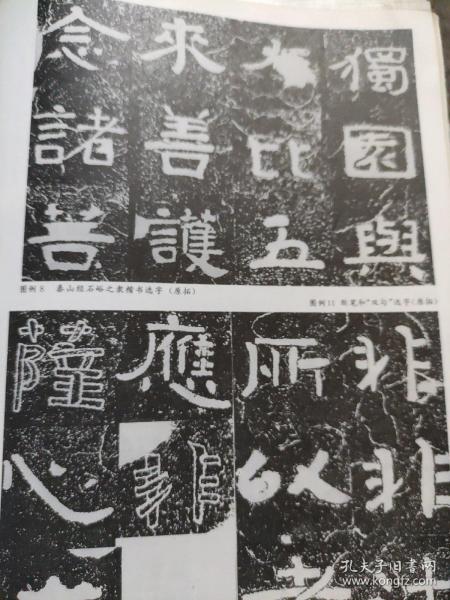 獨園與
比五
來善護
念諸菩
图例8 泰山经石峪之隶楷书选字 (原拓)
图例11 断笔和“双勾”选字(原拓)
非非
所以
應非
薩心
孔夫子旧书网
www.kongfz.com